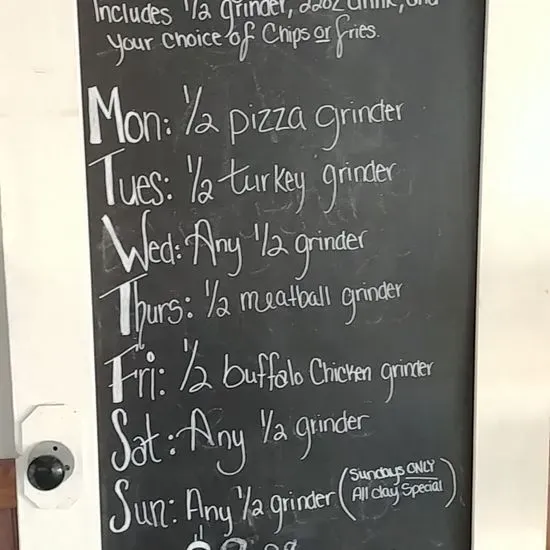 Includes 1/2 grinder, 22oz drink, and
your choice of Chips or fries.
Mon: 1/2 pizza grinder
Tues: 1/2 turkey grinder
Wed: Any 1/2 grinder
Thurs: 1/2 meatball grinder
Fri: 1/2 buffalo Chicken grinder
Sat: Any 1/2 grinder
Sun: Any 1/2 grinder (Sundays ONLY
All day Special)